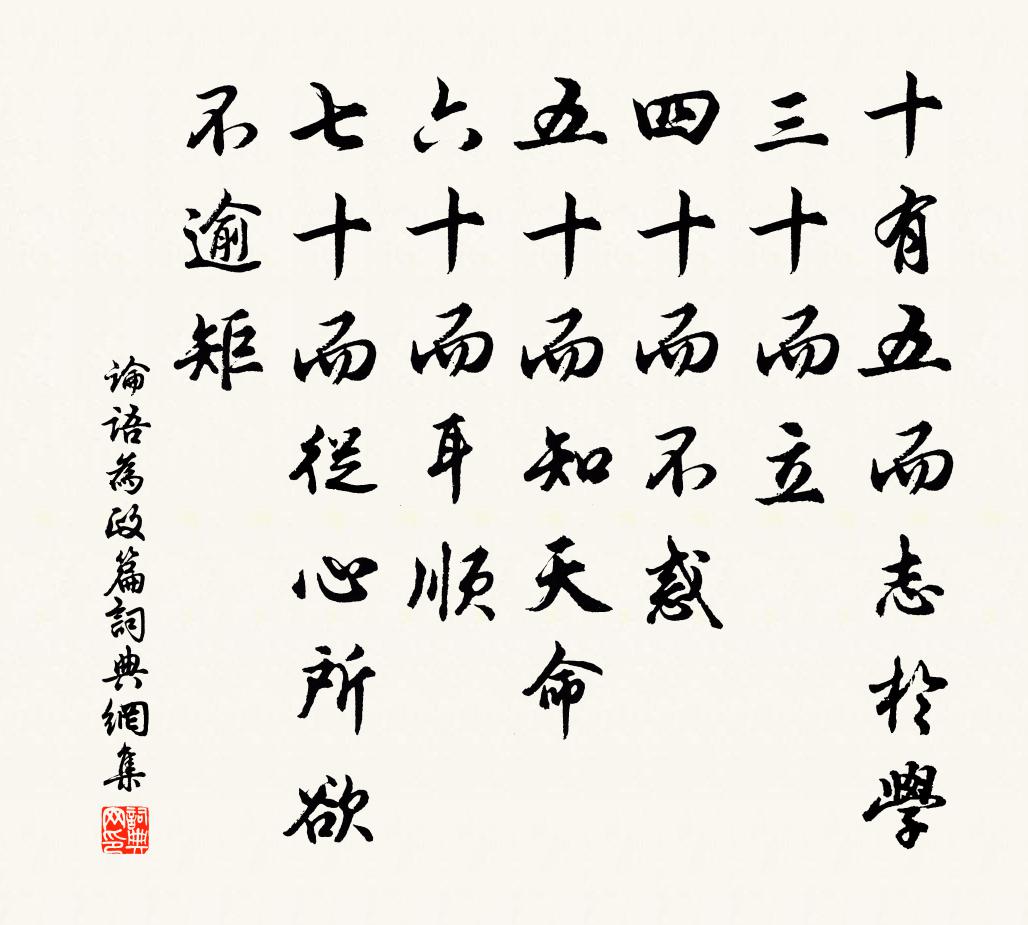 十有五而志於學
三十而立
四十而不惑
五十而知天命
六十而耳順
七十而從心所欲
不逾矩
論語為政篇詞典網集
詞典
网印